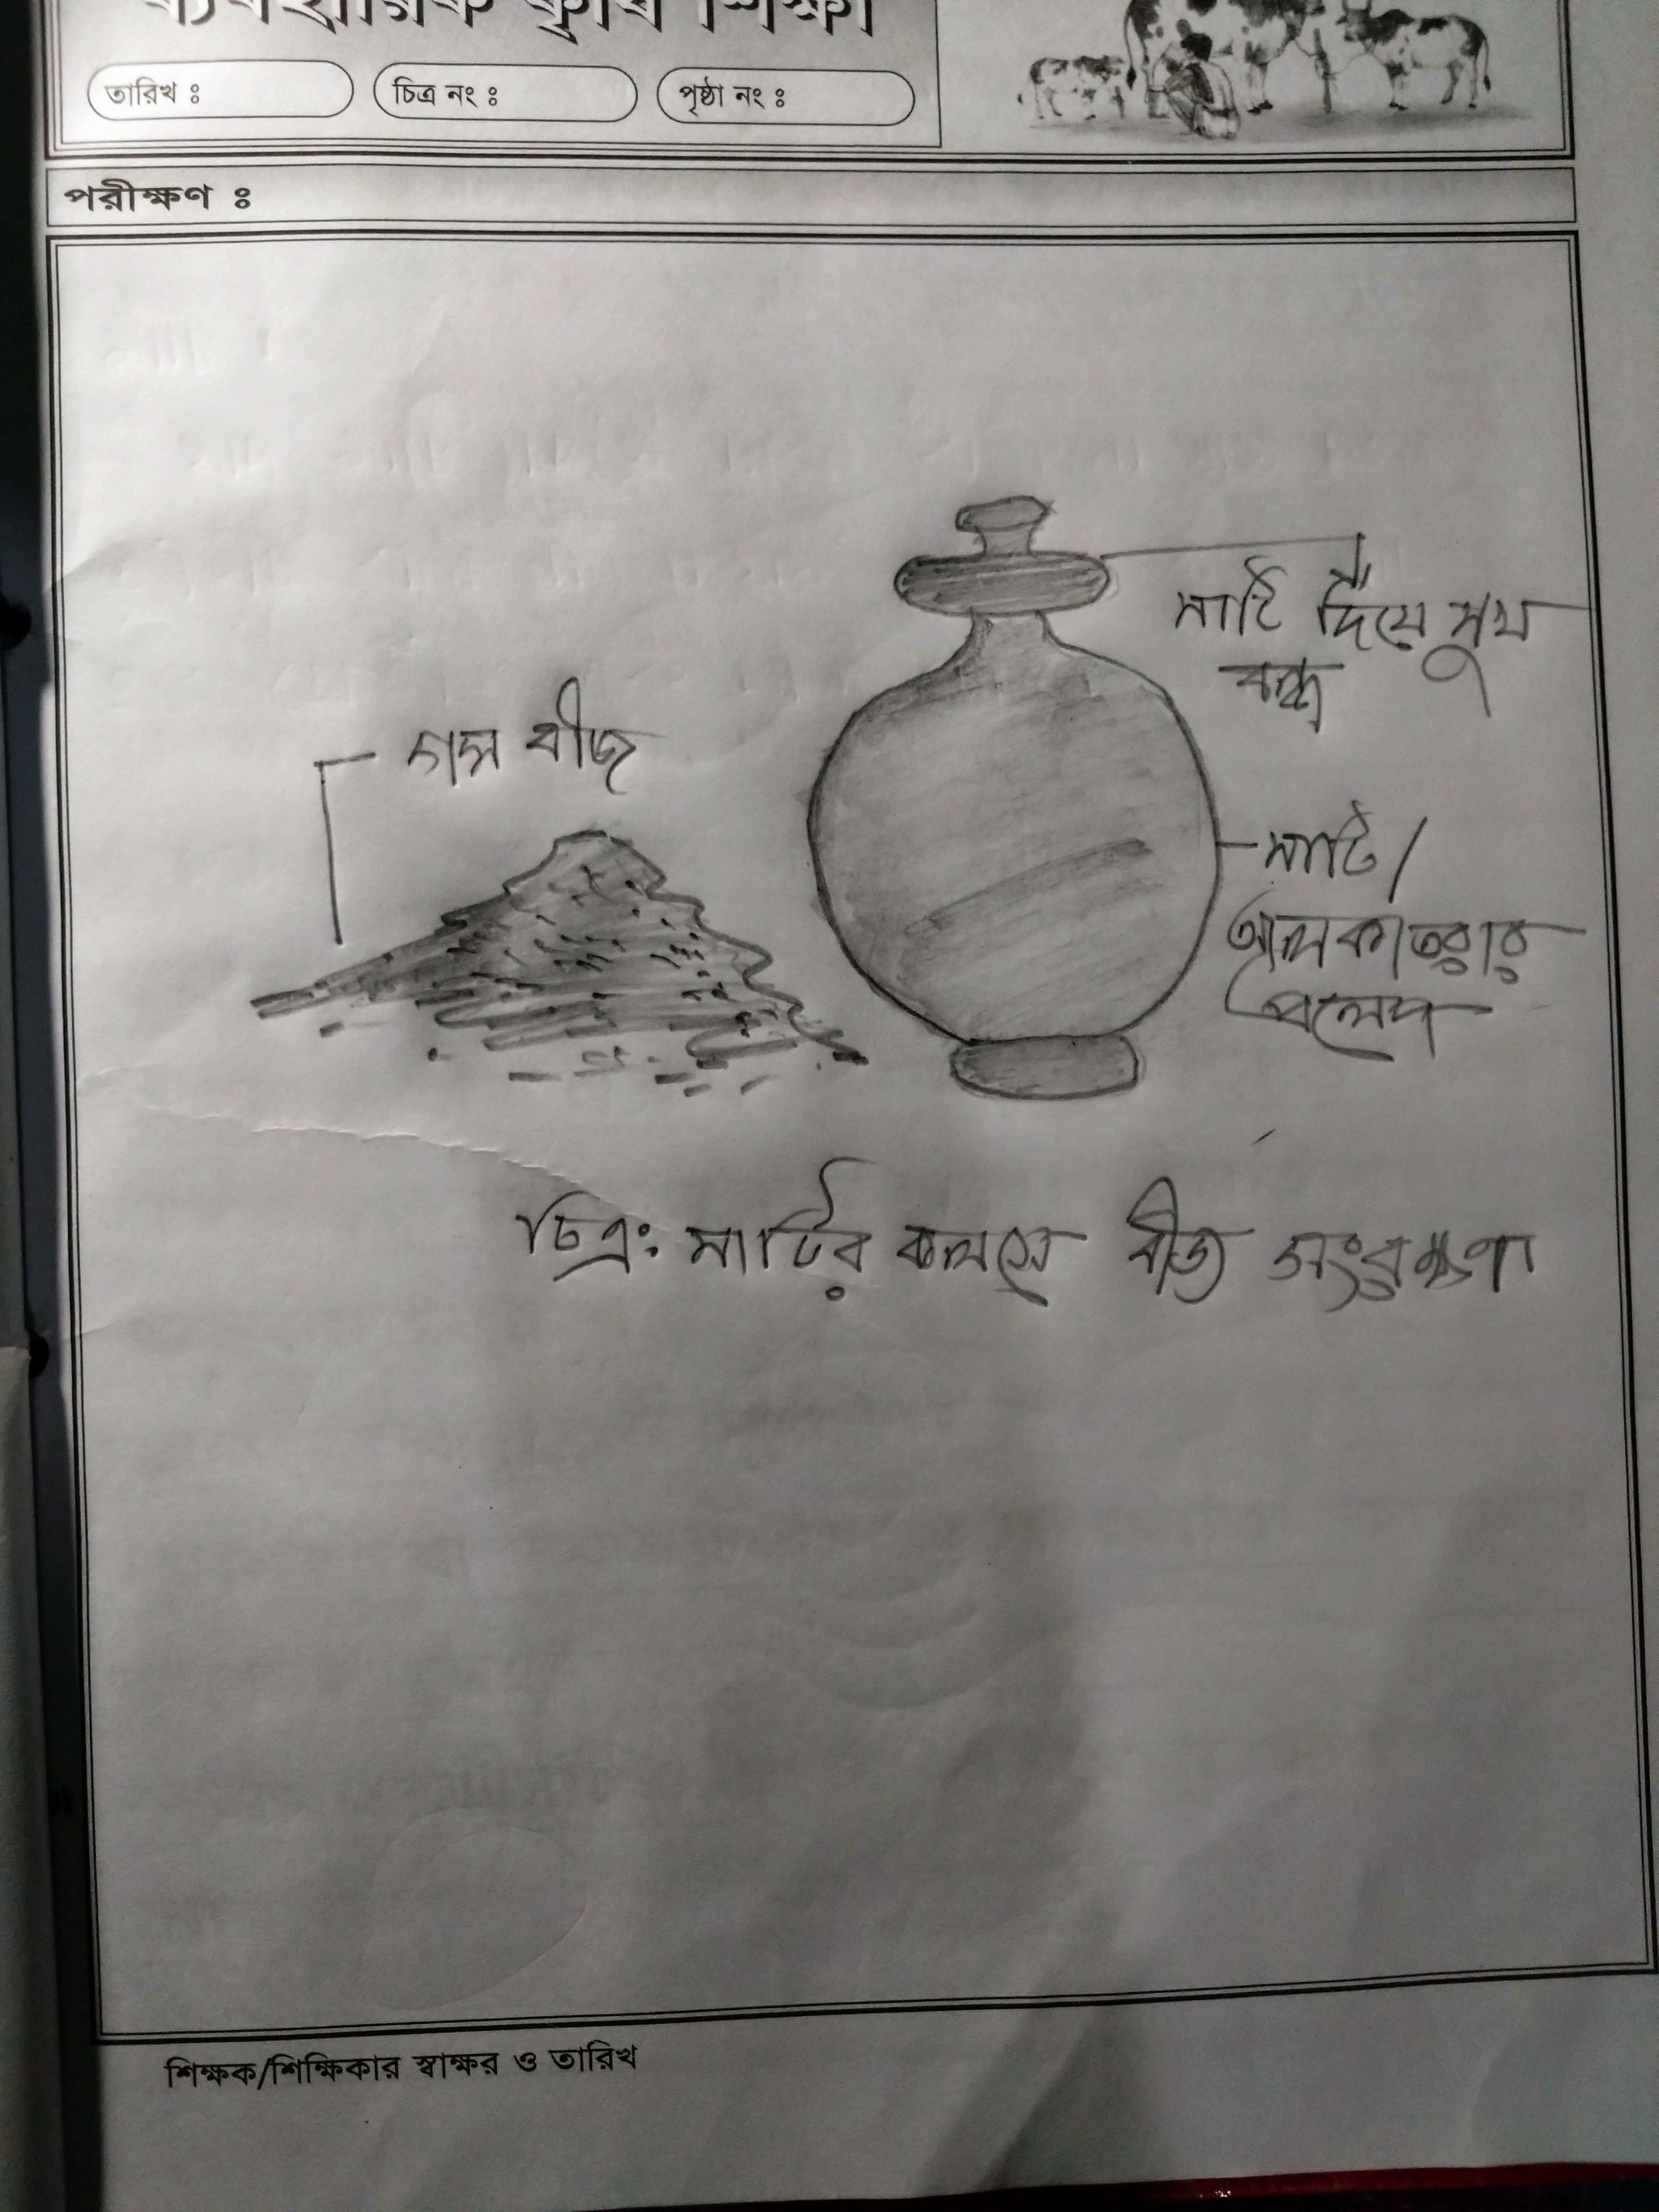 ব্যবহারিক কৃষি শিক্ষা
তারিখ ঃ
চিত্র নং ঃ
পৃষ্ঠা নং ঃ
পরীক্ষণ ঃ
মাটি দিয়ে মুখ
বন্ধ
বীজ
মাটি/
আলকাতরার
প্রলেপ
চিত্র: মাটির কলসে বীজ সংরক্ষণ।
শিক্ষক/শিক্ষিকার স্বাক্ষর ও তারিখ